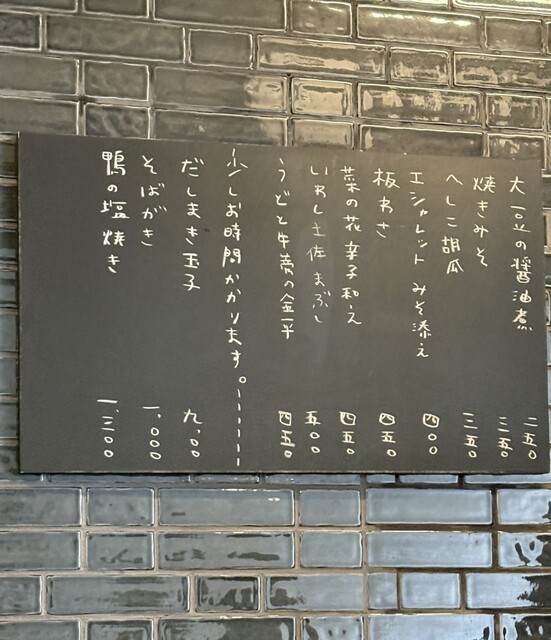 大豆の醤油煮 二五〇
焼きみそ 三五〇
へしこ胡瓜 三五〇
エシャレットみそ添え 四〇〇
板わさ 四五〇
菜の花辛子和え 四五〇
いわし土佐まぶし 五〇〇
うどと牛蒡の金平 四五〇
少しお時間かかります。
だしまき玉子 九〇〇
そばがき 一、〇〇〇
鴨の塩焼き 一、三〇〇